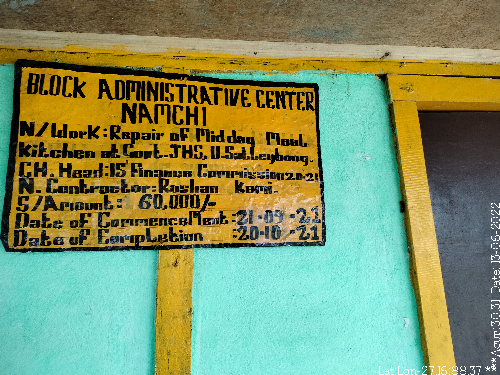 BLOCK ADMINISTRATIVE CENTER
NAMCHI
N/Work: Repair of Midday Meal
Kitchen at Govt. JHS, U. Salleybong.
G.H. Head: 15 Finance Commission 20-21
N. Contractor: Roshan Kami.
S/Amount: 60,000/-
Date of Commencement: 21-09-21
Date of Completion :20-10-21
Date:13-06-2022